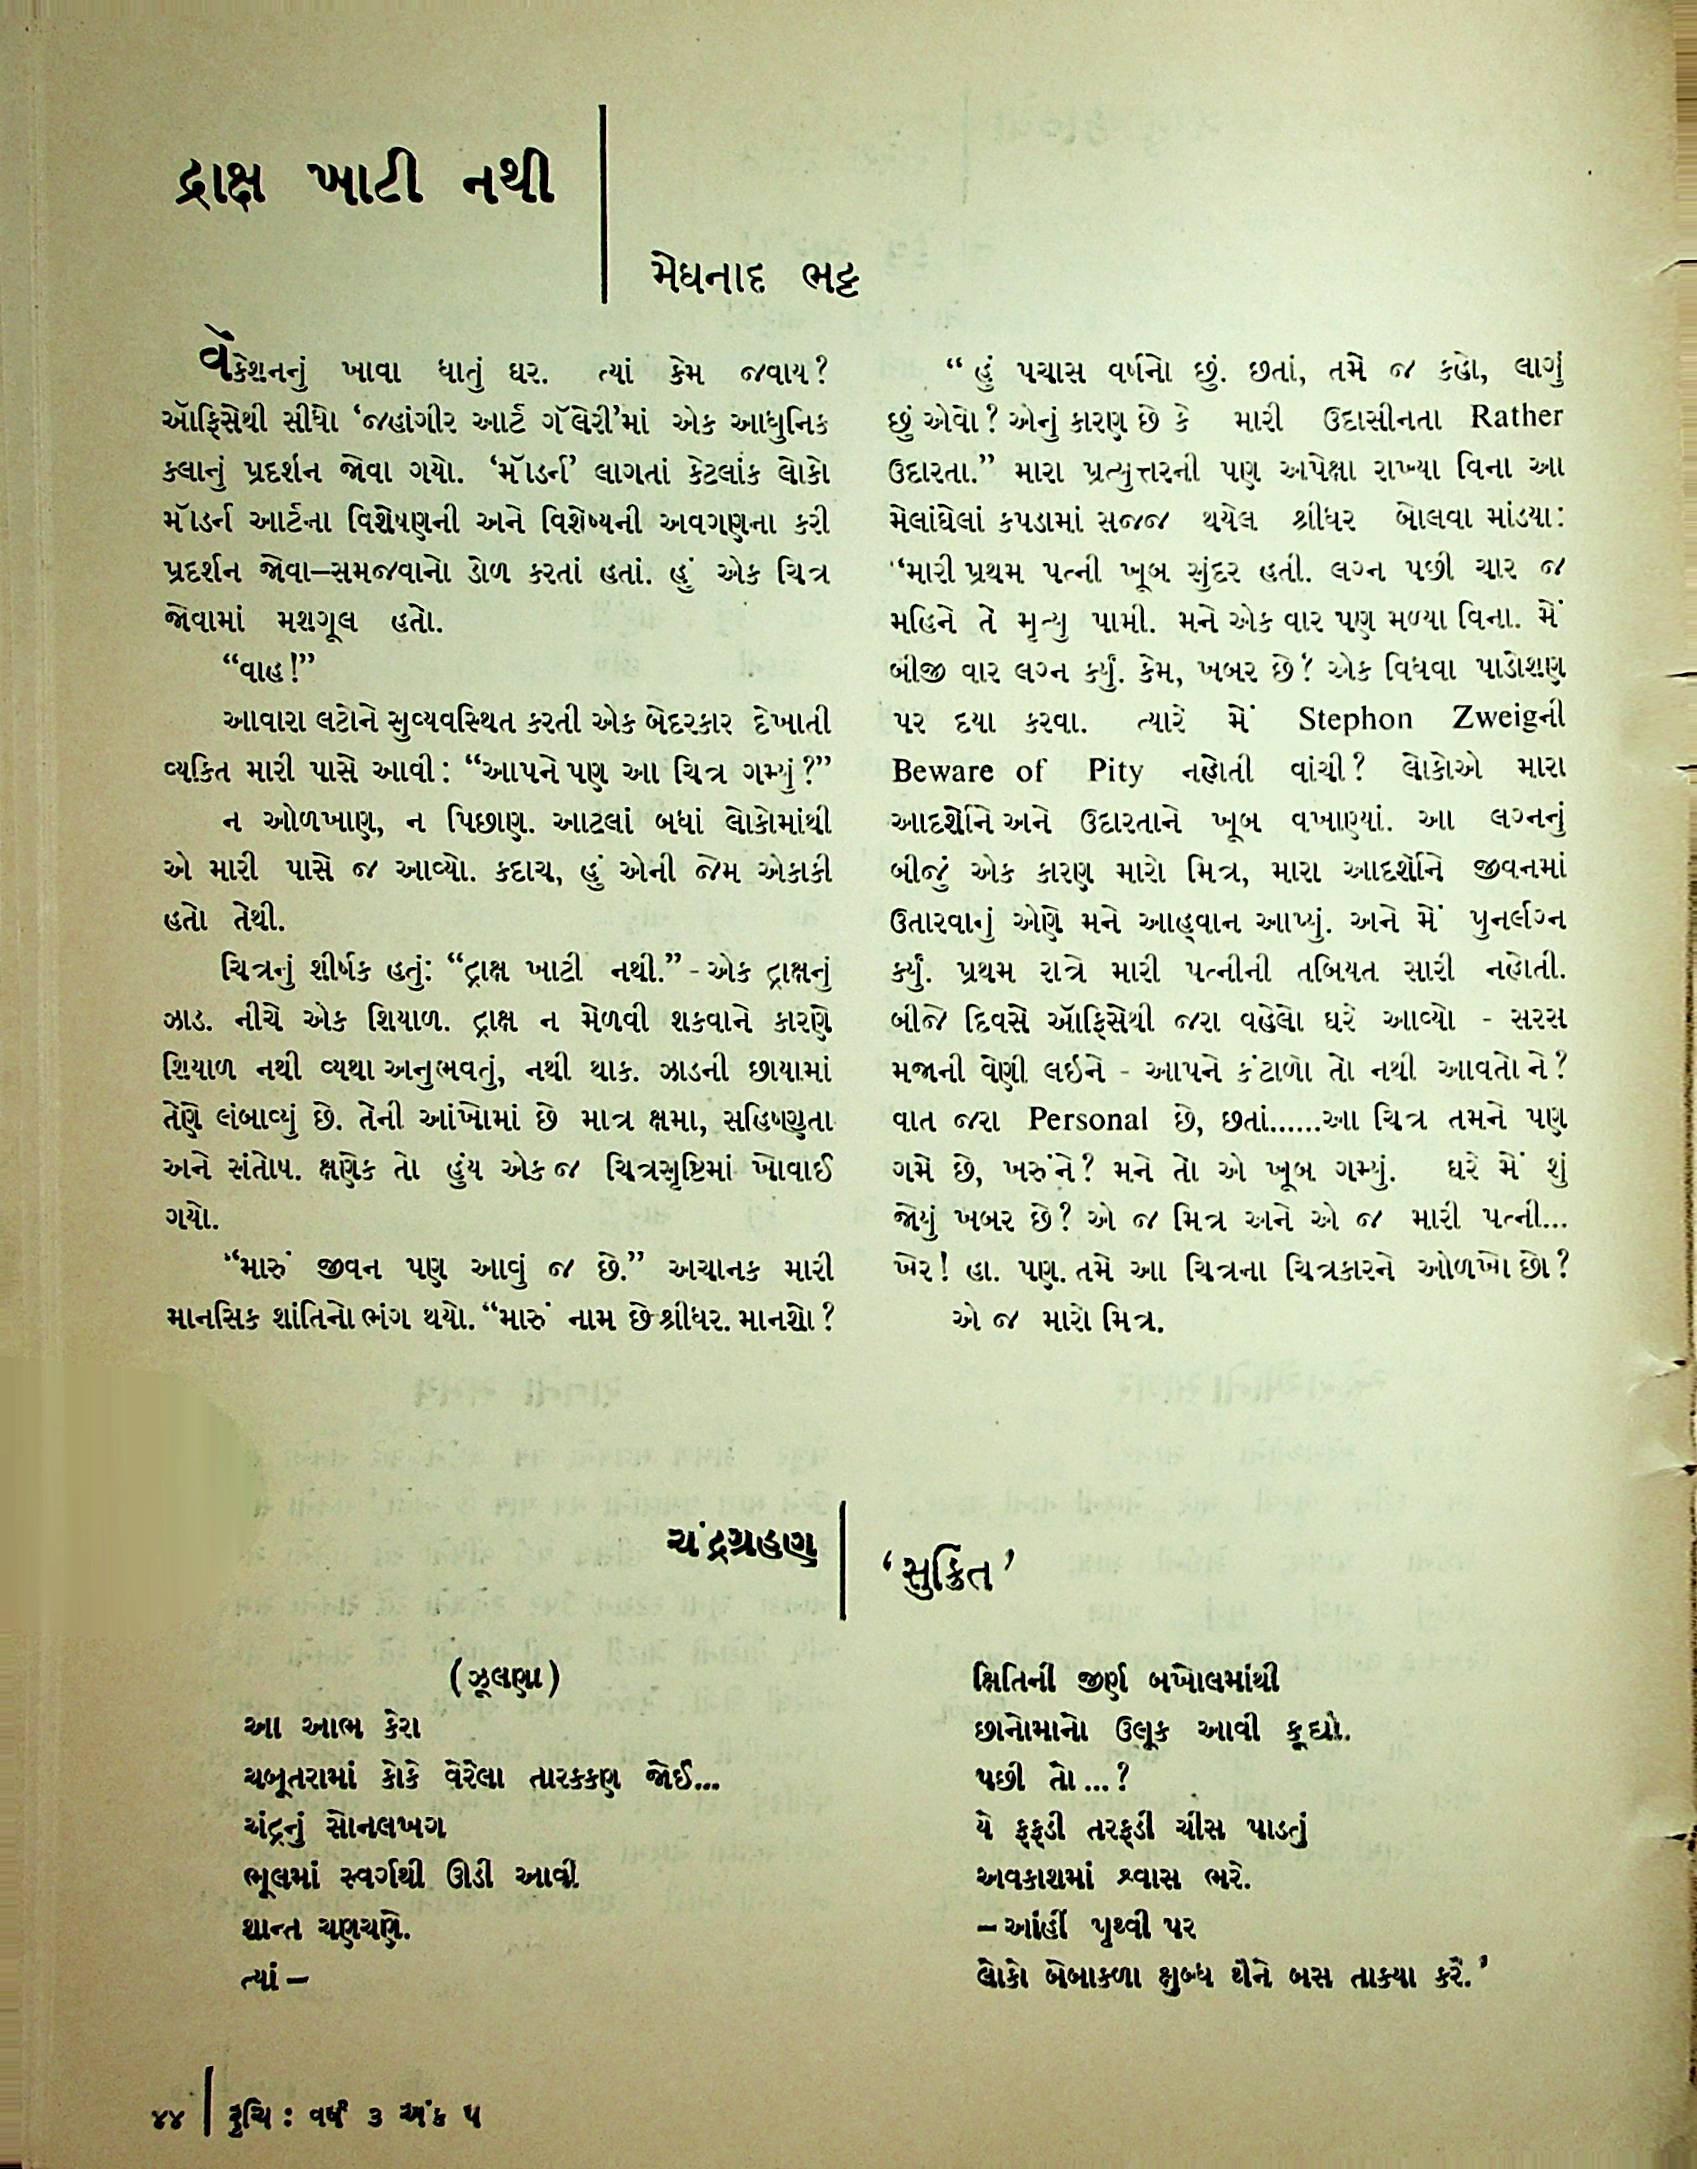 દ્રાક્ષ ખાટી નથી
મેઘનાદ ભટ્ટ
વૅકેશનનું ખાવા ધાતું ઘર. ત્યાં કેમ જવાય?
ઑફિસેથી સીધો ‘જહાંગીર આર્ટ ગૅલેરી’માં એક આધુનિક
કલાનું પ્રદર્શન જોવા ગયો. ‘મૉડર્ન’ લાગતાં કેટલાંક લોકો
મૉડર્ન આર્ટના વિશેષણની અને વિશેષ્યની અવગણના કરી
પ્રદર્શન જોવા–સમજવાનો ડોળ કરતાં હતાં. હું એક ચિત્ર
જોવામાં મશગૂલ હતો.
“વાહ!”
આવારા લટોને સુવ્યવસ્થિત કરતી એક બેદરકાર દેખાતી
વ્યકિત મારી પાસે આવી: “આપને પણ આ ચિત્ર ગમ્યું?”
ન ઓળખાણ, ન પિછાણ. આટલાં બધાં લોકોમાંથી
એ મારી પાસે જ આવ્યો. કદાચ, હું એની જેમ એકાકી
હતો તેથી.
ચિત્રનું શીર્ષક હતું: “દ્રાક્ષ ખાટી નથી.” - એક દ્રાક્ષનું
ઝાડ. નીચે એક શિયાળ. દ્રાક્ષ ન મેળવી શકવાને કારણે
શિયાળ નથી વ્યથા અનુભવતું, નથી થાક. ઝાડની છાયામાં
તેણે લંબાવ્યું છે. તેની આંખોમાં છે માત્ર ક્ષમા, સહિષ્ણુતા
અને સંતોષ. ક્ષણેક તો હુંય એક જ ચિત્રસૃષ્ટિમાં ખોવાઈ
ગયો.
“મારું જીવન પણ આવું જ છે.” અચાનક મારી
માનસિક શાંતિનો ભંગ થયો. “મારું નામ છે શ્રીધર. માનશો?
“હું પચાસ વર્ષનો છું. છતાં, તમે જ કહો, લાગું
છું એવો? એનું કારણ છે કે મારી ઉદાસીનતા Rather
ઉદારતા.” મારા પ્રત્યુત્તરની પણ અપેક્ષા રાખ્યા વિના આ
મેલાંઘેલાં કપડામાં સજ્જ થયેલ શ્રીધર બોલવા માંડયા:
“મારી પ્રથમ પત્ની ખૂબ સુંદર હતી. લગ્ન પછી ચાર જ
મહિને તે મૃત્યુ પામી. મને એક વાર પણ મળ્યા વિના. મેં
બીજી વાર લગ્ન કર્યું. કેમ, ખબર છે? એક વિધવા પાડોશણ
પર દયા કરવા. ત્યારે મેં Stephon Zweigની
Beware of Pity નહોતી વાંચી? લોકોએ મારા
આદર્શોને અને ઉદારતાને ખૂબ વખાણ્યાં. આ લગ્નનું
બીજું એક કારણ મારો મિત્ર, મારા આદર્શોને જીવનમાં
ઉતારવાનું એણે મને આહ્‌વાન આપ્યું. અને મેં પુનર્લગ્ન
કર્યું. પ્રથમ રાત્રે મારી પત્નીની તબિયત સારી નહોતી.
બીજે દિવસે ઑફિસેથી જરા વહેલો ઘરે આવ્યો - સરસ
મજાની વેણી લઇને - આપને કંટાળો તો નથી આવતો ને?
વાત જરા Personal છે, છતાં......આ ચિત્ર તમને પણ
ગમે છે, ખરુંને? મને તો એ ખૂબ ગમ્યું. ઘરે મેં શું
જોયું ખબર છે? એ જ મિત્ર અને એ જ મારી પત્ની...
ખેર! હા. પણ. તમે આ ચિત્રના ચિત્રકારને ઓળખો છો?
એ જ મારો મિત્ર.
ચંદ્રગ્રહણ
‘સુક્રિત’
(ઝૂલણા)
આ આભ કેરા
ચબૂતરામાં કોકે વેરેલા તારકકણ જોઈ...
ચંદ્રનું સોનલખગ
ભૂલમાં સ્વર્ગથી ઊડી આવી
શાન્ત ચણચણે.
ત્યાં –
ક્ષિતિની જીર્ણ બખોલમાંથી
છાનોમાનો ઉલૂક આવી કૂદ્યો.
પછી તો ...?
યે ફફડી તરફડી ચીસ પાડતું
અવકાશમાં શ્વાસ ભરે.
– આંહીં પૃથ્વી પર
લોકો બેબાકળા ક્ષુબ્ધ થૈને બસ તાક્યા કરે.’
૪૪ | રુચિ : વર્ષ ૩ અંક ૫